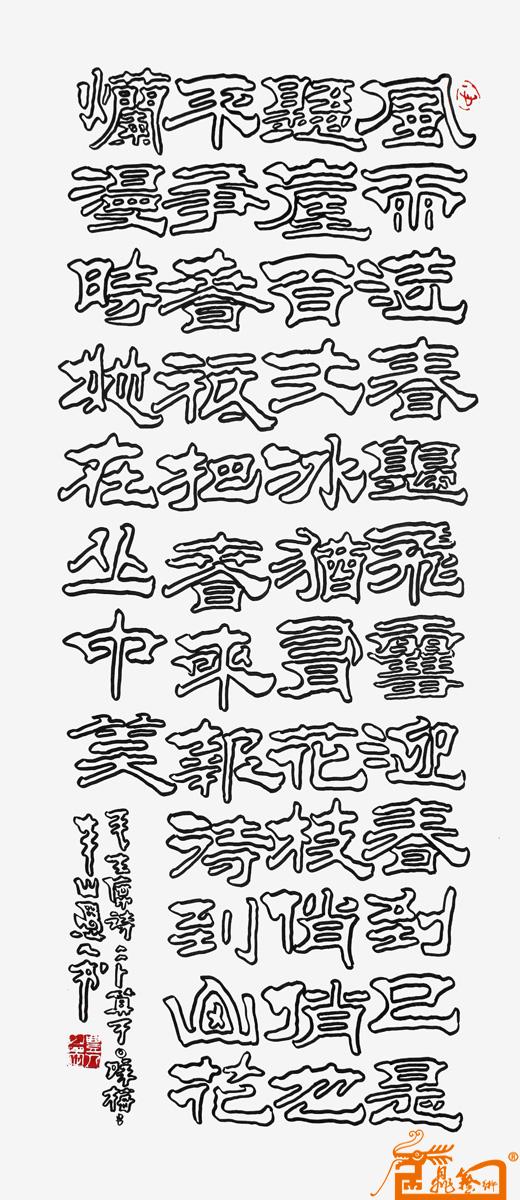 風雨送春歸飛雪迎春到已是
懸崖百丈冰猶有花枝俏俏也
不爭春祗把春來報待到山花
爛漫時她在丛中笑
毛主席詩卜算子。咏梅